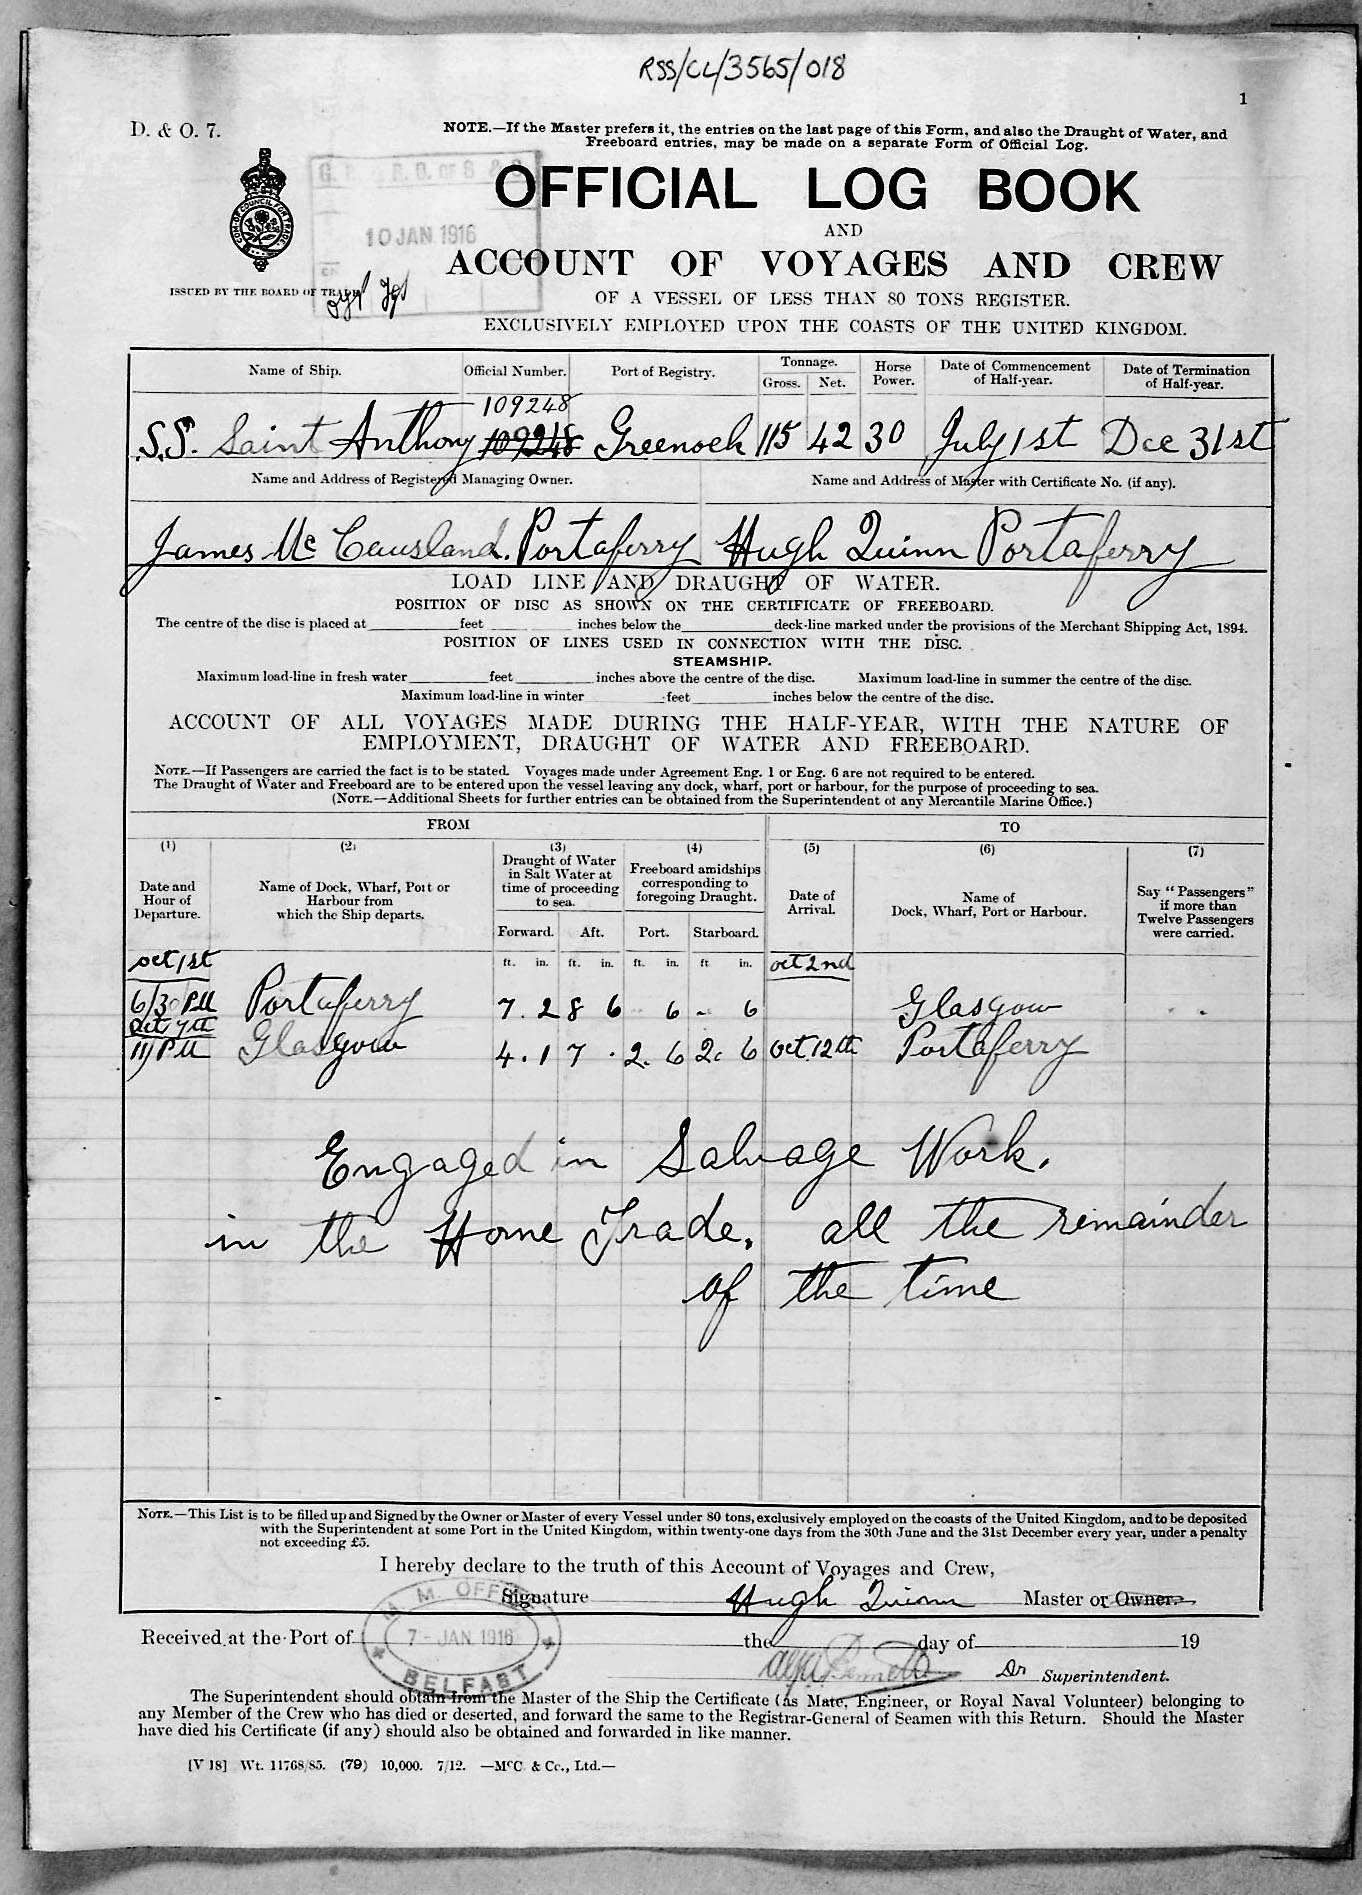 RSS/CL/3565/018
1
D. & O. 7.
NOTE.—If the Master prefers it, the entries on the last page of this Form, and also the Draught of Water, and
Freeboard entries, may be made on a separate Form of Official Log.
OFFICIAL LOG BOOK
AND
ACCOUNT OF VOYAGES AND CREW
OF A VESSEL OF LESS THAN 80 TONS REGISTER.
EXCLUSIVELY EMPLOYED UPON THE COASTS OF THE UNITED KINGDOM.
COM. OF COUNCIL FOR TRADE
ISSUED BY THE BOARD OF TRADE
R.O. OF S & S
10 JAN 1916
Name of Ship. Official Number. Port of Registry. Tonnage. Gross. Net. Horse Power. Date of Commencement of Half-year. Date of Termination of Half-year.
109248
S.S. Saint Anthony 109248 Greenock 115 42 30 July 1st Dec 31st
Name and Address of Registered Managing Owner. Name and Address of Master with Certificate No. (if any).
James Mc Causland. Portaferry Hugh Quinn Portaferry
LOAD LINE AND DRAUGHT OF WATER.
POSITION OF DISC AS SHOWN ON THE CERTIFICATE OF FREEBOARD.
The centre of the disc is placed at feet inches below the deck-line marked under the provisions of the Merchant Shipping Act, 1894.
POSITION OF LINES USED IN CONNECTION WITH THE DISC.
STEAMSHIP.
Maximum load-line in fresh water feet inches above the centre of the disc. Maximum load-line in summer the centre of the disc.
Maximum load-line in winter feet inches below the centre of the disc.
ACCOUNT OF ALL VOYAGES MADE DURING THE HALF-YEAR, WITH THE NATURE OF
EMPLOYMENT, DRAUGHT OF WATER AND FREEBOARD.
NOTE.—If Passengers are carried the fact is to be stated. Voyages made under Agreement Eng. 1 or Eng. 6 are not required to be entered.
The Draught of Water and Freeboard are to be entered upon the vessel leaving any dock, wharf, port or harbour, for the purpose of proceeding to sea.
(NOTE.—Additional Sheets for further entries can be obtained from the Superintendent of any Mercantile Marine Office.)
FROM TO
(1) (2) (3) (4) (5) (6) (7)
Date and Hour of Departure. Name of Dock, Wharf, Port or Harbour from which the Ship departs. Draught of Water in Salt Water at time of proceeding to sea. Freeboard amidships corresponding to foregoing Draught. Date of Arrival. Name of Dock, Wharf, Port or Harbour. Say "Passengers" if more than Twelve Passengers were carried.
Forward. Aft. Port. Starboard.
ft. in. ft. in. ft. in. ft in.
Oct 1st Oct 2nd
6/30 PM Portaferry 7. 2 8 6 6 - 6 Glasgow
Oct 7th
11/PM Glasgow 4. 1 7 . 2. 6 2. 6 Oct. 12th Portaferry
Engaged in Salvage Work.
in the Home Trade, all the remainder
of the time
NOTE.—This List is to be filled up and Signed by the Owner or Master of every Vessel under 80 tons, exclusively employed on the coasts of the United Kingdom, and to be deposited
with the Superintendent at some Port in the United Kingdom, within twenty-one days from the 30th June and the 31st December every year, under a penalty
not exceeding £5.
I hereby declare to the truth of this Account of Voyages and Crew,
Signature Hugh Quinn Master or Owner.
Received at the Port of the day of 19
M. M. OFFICE
7 - JAN 1916
BELFAST
Superintendent.
The Superintendent should obtain from the Master of the Ship the Certificate (as Mate, Engineer, or Royal Naval Volunteer) belonging to
any Member of the Crew who has died or deserted, and forward the same to the Registrar-General of Seamen with this Return. Should the Master
have died his Certificate (if any) should also be obtained and forwarded in like manner.
[V 18] Wt. 11768/85. (79) 10,000. 7/12. —McC. & Co., Ltd.—